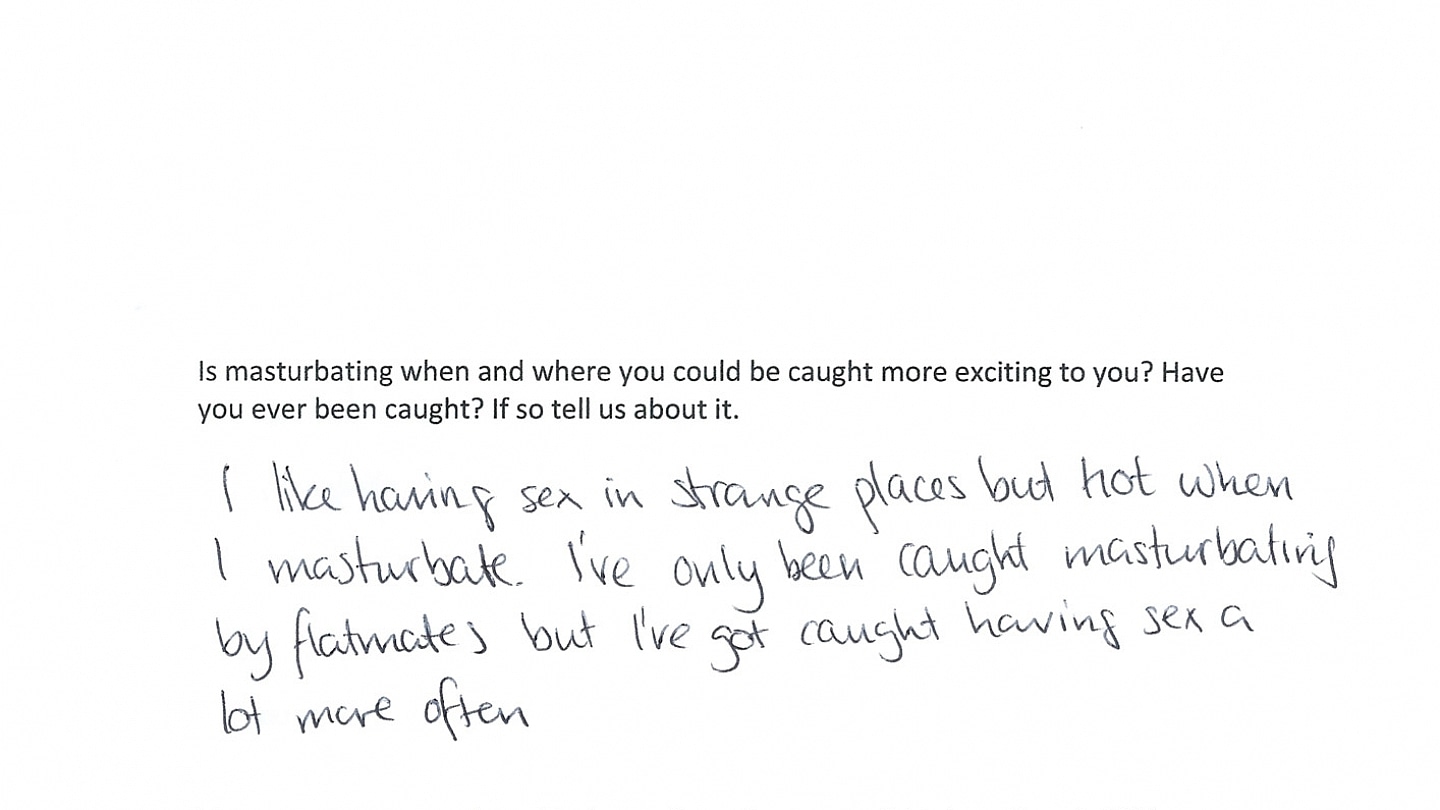 Is masturbating when and where you could be caught more exciting to you? Have
you ever been caught? If so tell us about it.
I like having sex in strange places but not when
I masturbate. I've only been caught masturbating
by flatmates but I've got caught having sex a
lot more often